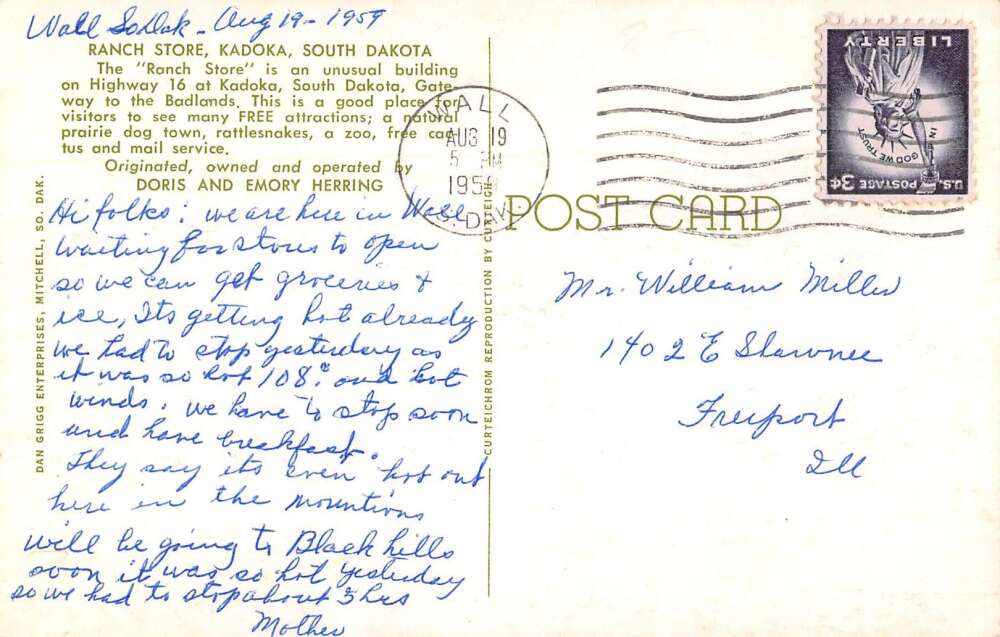 Wall So.Dak - Aug 19 - 1959
RANCH STORE, KADOKA, SOUTH DAKOTA
The "Ranch Store" is an unusual building
on Highway 16 at Kadoka, South Dakota, Gate-
way to the Badlands. This is a good place for
visitors to see many FREE attractions; a natural
prairie dog town, rattlesnakes, a zoo, free cac-
tus and mail service.
Originated, owned and operated by
DORIS AND EMORY HERRING
Hi folks: we are here in Wall
waiting for stores to open
so we can get groceries &
ice, Its getting hot already
we had to stop yesterday as
it was so hot 108° and hot
winds. we have to stop soon
and have breakfast.
They say its even hot out
here in the mountions
will be going to Black hills
soon it was so hot yesterday
so we had to stop about 3 hrs
Mother
DAN GRIGG ENTERPRISES, MITCHELL, SO. DAK.
CURTEICHROM REPRODUCTION BY CURTEICH
POST CARD
WALL
AUG 19
5 PM
1959
S. DAK.
LIBERTY
IN GOD WE TRUST
U.S. POSTAGE 3¢
Mr. William Miller
1402 E Shawnee
Freeport
Ill